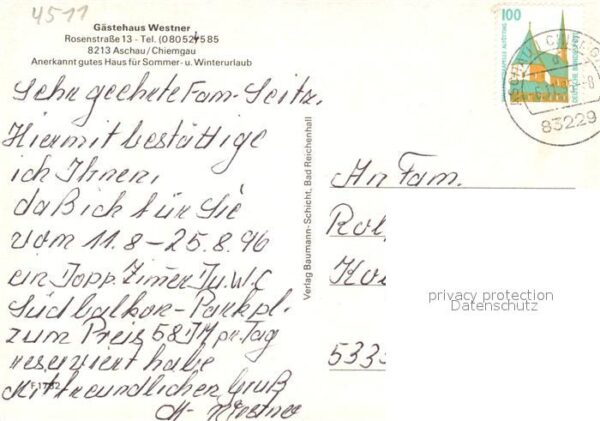 4511
Gästehaus Westner
Rosenstraße 13 - Tel. (08052) 585
8213 Aschau/Chiemgau
Anerkannt gutes Haus für Sommer- u. Winterurlaub
100
DEUTSCHE BUNDESPOST
83229
Sehr geehrte Fam. Seitz.
Hiermit bestättige
ich Ihnen,
daß ich für Sie
vom 11.8-25.8.96
ein Dopp. Zimer Du. W.C
Südbalkon-Parkpl.
zum Preis 58 DM pr. Tag
reserviert habe
Mit freundlichen Gruß
M. Westner
F1762
Verlag Baumann-Schicht, Bad Reichenhall
An Fam.
privacy protection
Datenschutz